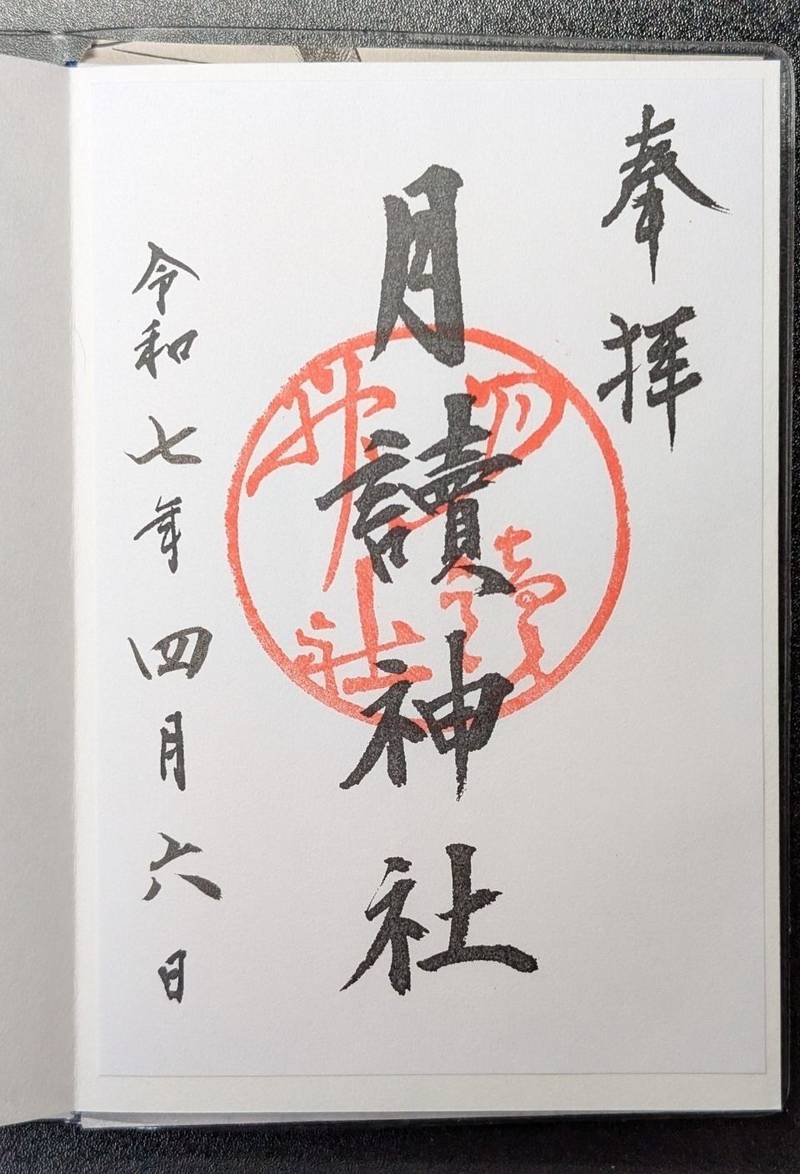 奉拝
月讀神社
月讀神社
令和七年四月六日